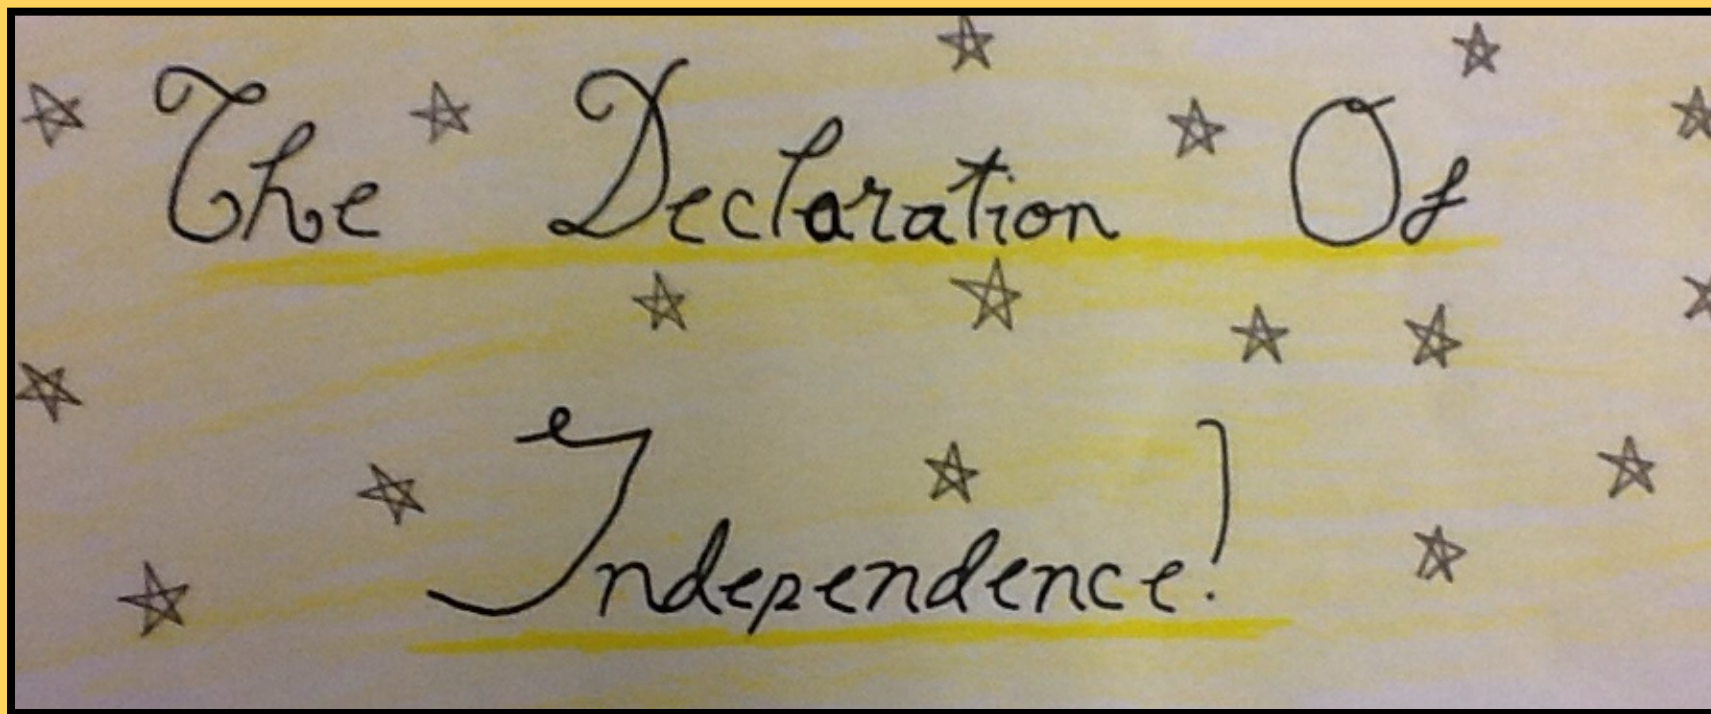 The Declaration Of
Independence!